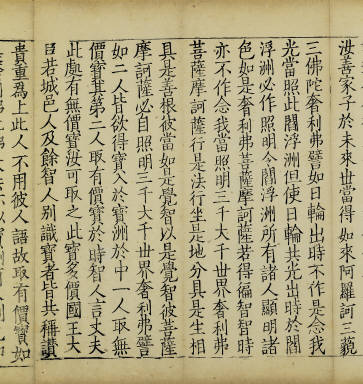 汝善家子於未來世當得如來阿羅訶三藐
三佛陀奢利弗譬如日輪出時不作是念我
光當照此閻浮洲但使日輪共光出時於閻
浮洲必作照明令閻浮洲所有諸人顯明諸
色如是奢利弗菩薩摩訶薩若得徧智智時
亦不作念我當照明三千大千世界奢利弗
菩薩摩訶薩行是法行坐是地分具是生相
具是善根彼當如是覺智以是覺智彼菩薩
摩訶薩必自照明三千大千世界奢利弗譬
如二人皆欲得寶入於寶洲於中一人取無
價寶其第二人取有價寶於時智人言丈夫
此處有無價寶汝可取之此寶多價國王大
臣若城邑人及餘智人別識寶者皆共稱讚
貴重為上此人不用彼人語故取有價寶如